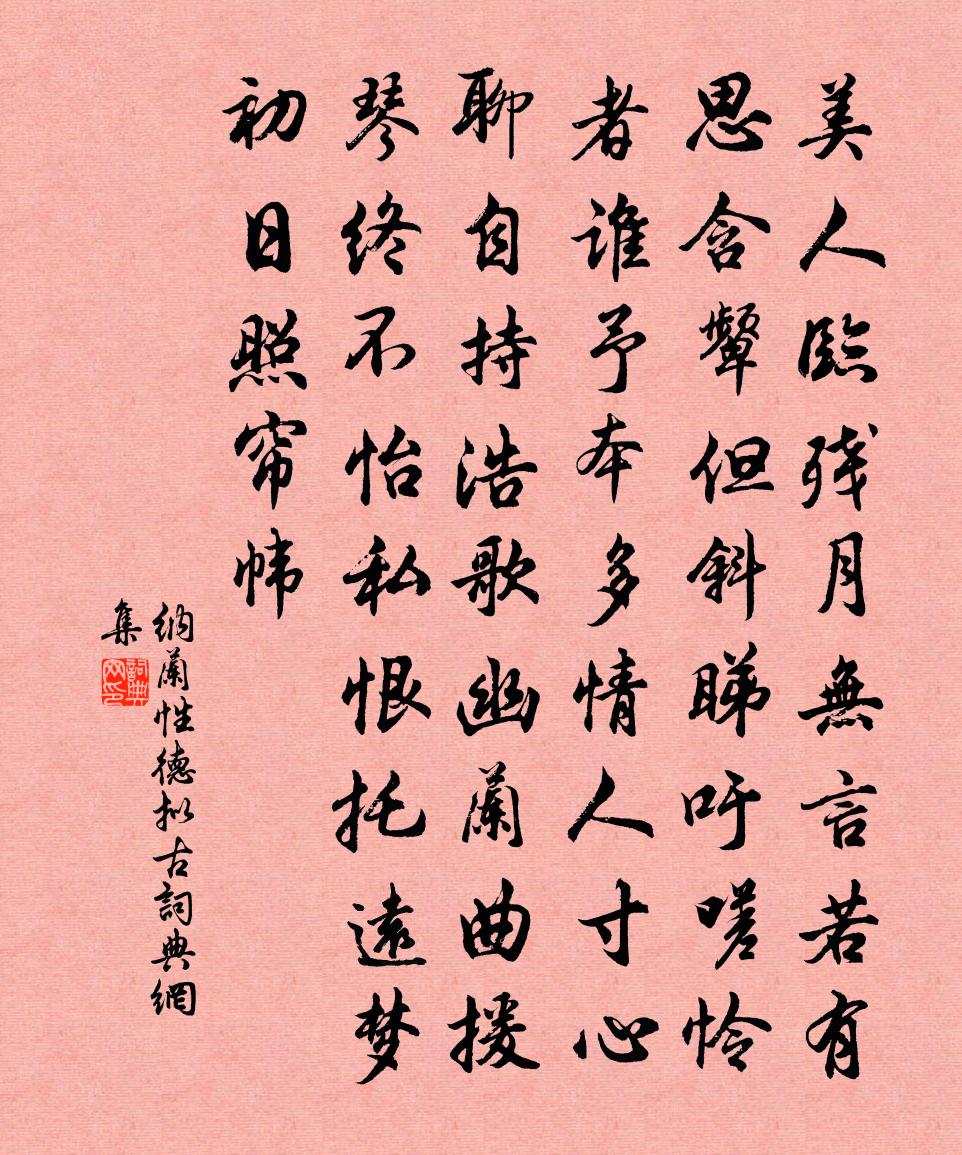 美人臨残月無言若有
思含颦但斜睇吁嗟怜
者誰予本多情人寸心
聊自持浩歌幽蘭曲援
琴终不怡私恨托遠梦
初日照帘帏
纳蘭性德拟古詞典網
集
詞典
网印